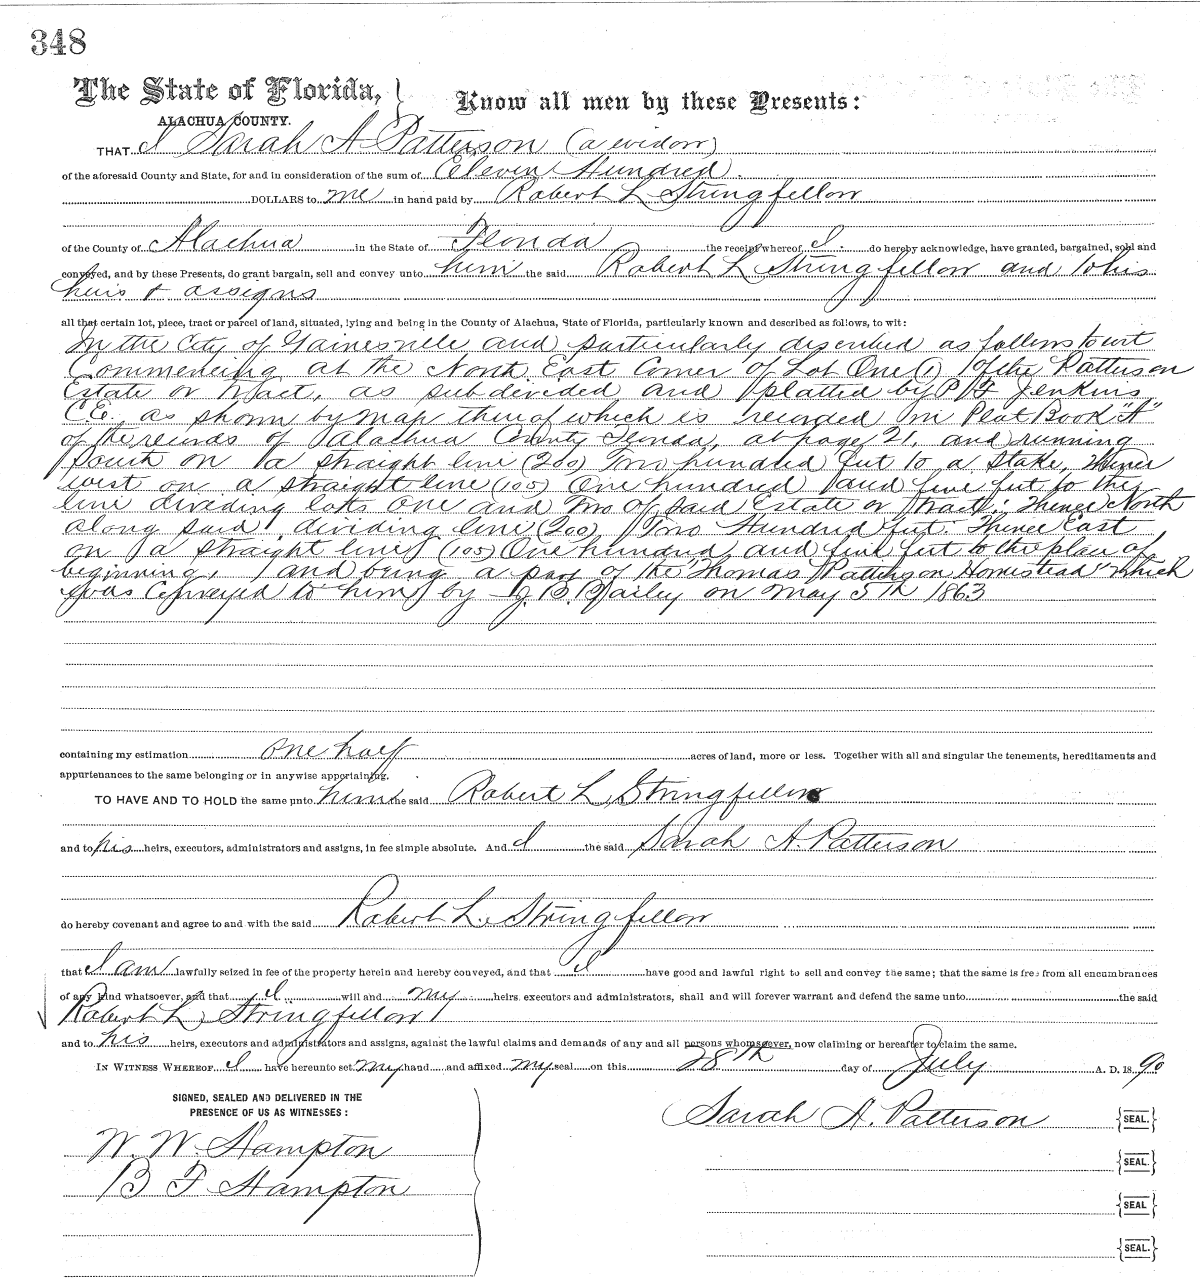 348
The State of Florida, } Know all men by these Presents:
ALACHUA COUNTY.
THAT I Sarah A Patterson (a widow)
of the aforesaid County and State, for and in consideration of the sum of Eleven Hundred
DOLLARS to me in hand paid by Robert L Stringfellow
of the County of Alachua in the State of Florida the receipt whereof I do hereby acknowledge, have granted, bargained, sold and
conveyed, and by these Presents, do grant bargain, sell and convey unto him the said Robert L Stringfellow and to his
heirs & assigns
all that certain lot, piece, tract or parcel of land, situated, lying and being in the County of Alachua, State of Florida, particularly known and described as follows, to wit:
In the City of Gainesville and particularly described as follows to wit
Commencing at the North East Corner of Lot One (1) of the Patterson
Estate or Tract, as subdivided and platted by P. Jenkins
C.E. as shown by map thereof which is recorded in Plat Book "A"
of the records of Alachua County Florida, at page 21, and running
South on a straight line (200) Two hundred feet to a stake, Thence
west on a straight line (105) One hundred and five feet to the
line dividing lots one and Two of said Estate or Tract; Thence North
along said dividing line (200) Two Hundred feet. Thence East
on a straight line (105) One hundred and five feet to the place of
beginning, and being a part of the "Thomas Patterson Homestead" which
was conveyed to him by J. B. Bailey on May 5th 1863
containing my estimation one half acres of land, more or less. Together with all and singular the tenements, hereditaments and
appurtenances to the same belonging or in anywise appertaining.
TO HAVE AND TO HOLD the same unto him the said Robert L, Stringfellow
and to his heirs, executors, administrators and assigns, in fee simple absolute. And I the said Sarah A. Patterson
do hereby covenant and agree to and with the said Robert L. Stringfellow
that I am lawfully seized in fee of the property herein and hereby conveyed, and that I have good and lawful right to sell and convey the same; that the same is free from all encumbrances
of any kind whatsoever, and that I will and my heirs executors and administrators, shall and will forever warrant and defend the same unto the said
Robert L, Stringfellow
and to his heirs, executors and administrators and assigns, against the lawful claims and demands of any and all persons whomsoever, now claiming or hereafter to claim the same.
IN WITNESS WHEREOF I have hereunto set my hand and affixed my seal on this 28th day of July A. D. 1890
SIGNED, SEALED AND DELIVERED IN THE
PRESENCE OF US AS WITNESSES:
Sarah A. Patterson {SEAL.}
W. W. Hampton
{SEAL.}
B F Hampton
{SEAL}
{SEAL.}